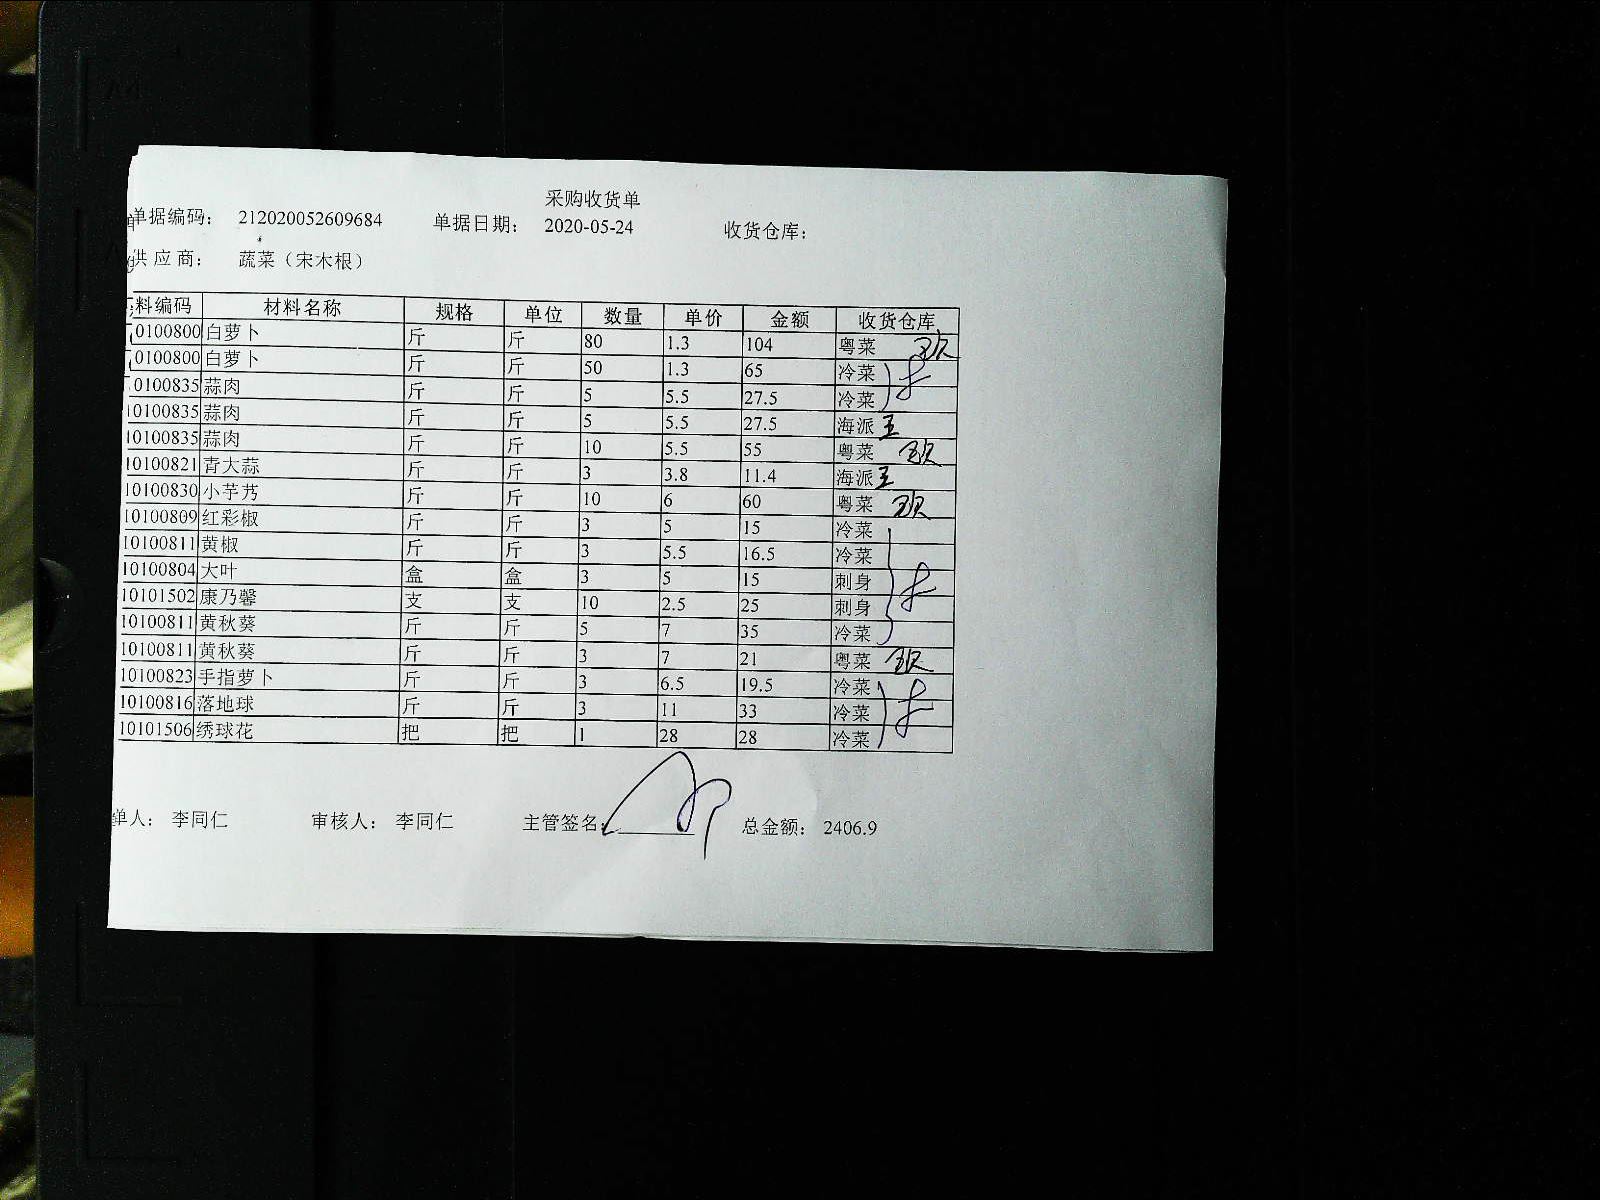 采购收货单
单据编码： 212020052609684 单据日期： 2020-05-24 收货仓库：
供应商： 蔬菜（宋木根）
料编码 材料名称 规格 单位 数量 单价 金额 收货仓库
0100800 白萝卜 斤 斤 80 1.3 104 粤菜
0100800 白萝卜 斤 斤 50 1.3 65 冷菜
0100835 蒜肉 斤 斤 5 5.5 27.5 冷菜
10100835 蒜肉 斤 斤 5 5.5 27.5 海派 王
10100835 蒜肉 斤 斤 10 5.5 55 粤菜
10100821 青大蒜 斤 斤 3 3.8 11.4 海派 王
10100830 小芋艿 斤 斤 10 6 60 粤菜
10100809 红彩椒 斤 斤 3 5 15 冷菜
10100811 黄椒 斤 斤 3 5.5 16.5 冷菜
10100804 大叶 盒 盒 3 5 15 刺身
10101502 康乃馨 支 支 10 2.5 25 刺身
10100811 黄秋葵 斤 斤 5 7 35 冷菜
10100811 黄秋葵 斤 斤 3 7 21 粤菜
10100823 手指萝卜 斤 斤 3 6.5 19.5 冷菜
10100816 落地球 斤 斤 3 11 33 冷菜
10101506 绣球花 把 把 1 28 28 冷菜
单人： 李同仁 审核人： 李同仁 主管签名： 总金额： 2406.9